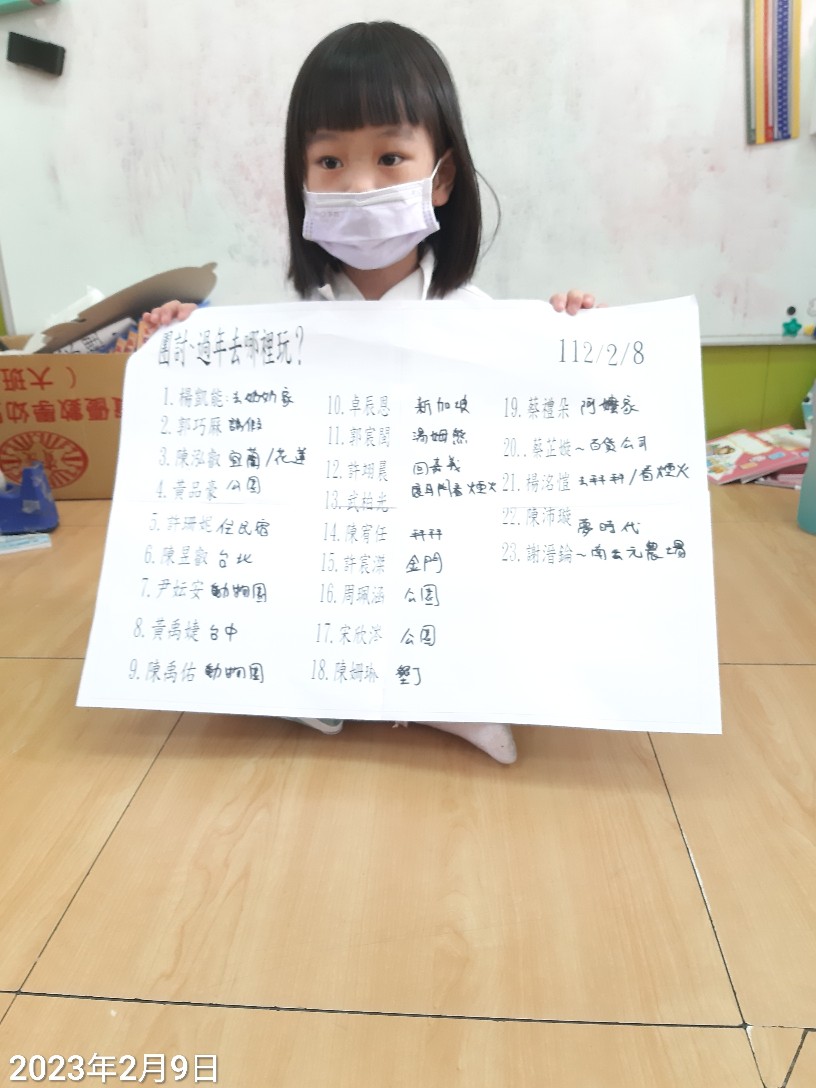 團討~過年去哪裡玩?
112/2/8
1. 楊凱能:去奶奶家
2. 郭巧庥 請假
3. 陳泓叡 宜蘭/花蓮
4. 黃品豪 公園
5. 許珊妮 住民宿
6. 陳昱叡 台北
7. 尹妘安 動物園
8. 黃禹婕 台中
9. 陳禹佑 動物園
10. 卓辰恩 新加坡
11. 郭宸閎 湯姆熊
12. 許翊晨 回嘉義
13. 武柏光 看煙火
14. 陳宥任
15. 許宸溁 金門
16. 周珮涵 公園
17. 宋欣 公園
18. 陳姍琳 墾丁
19. 蔡禮朵 阿嬤家
20. 蔡芷媫~百貨公司
21. 楊洺愷 看煙火
22. 陳沛璇 夢時代
23. 謝溍錀~南元農場
大班
2023年2月9日